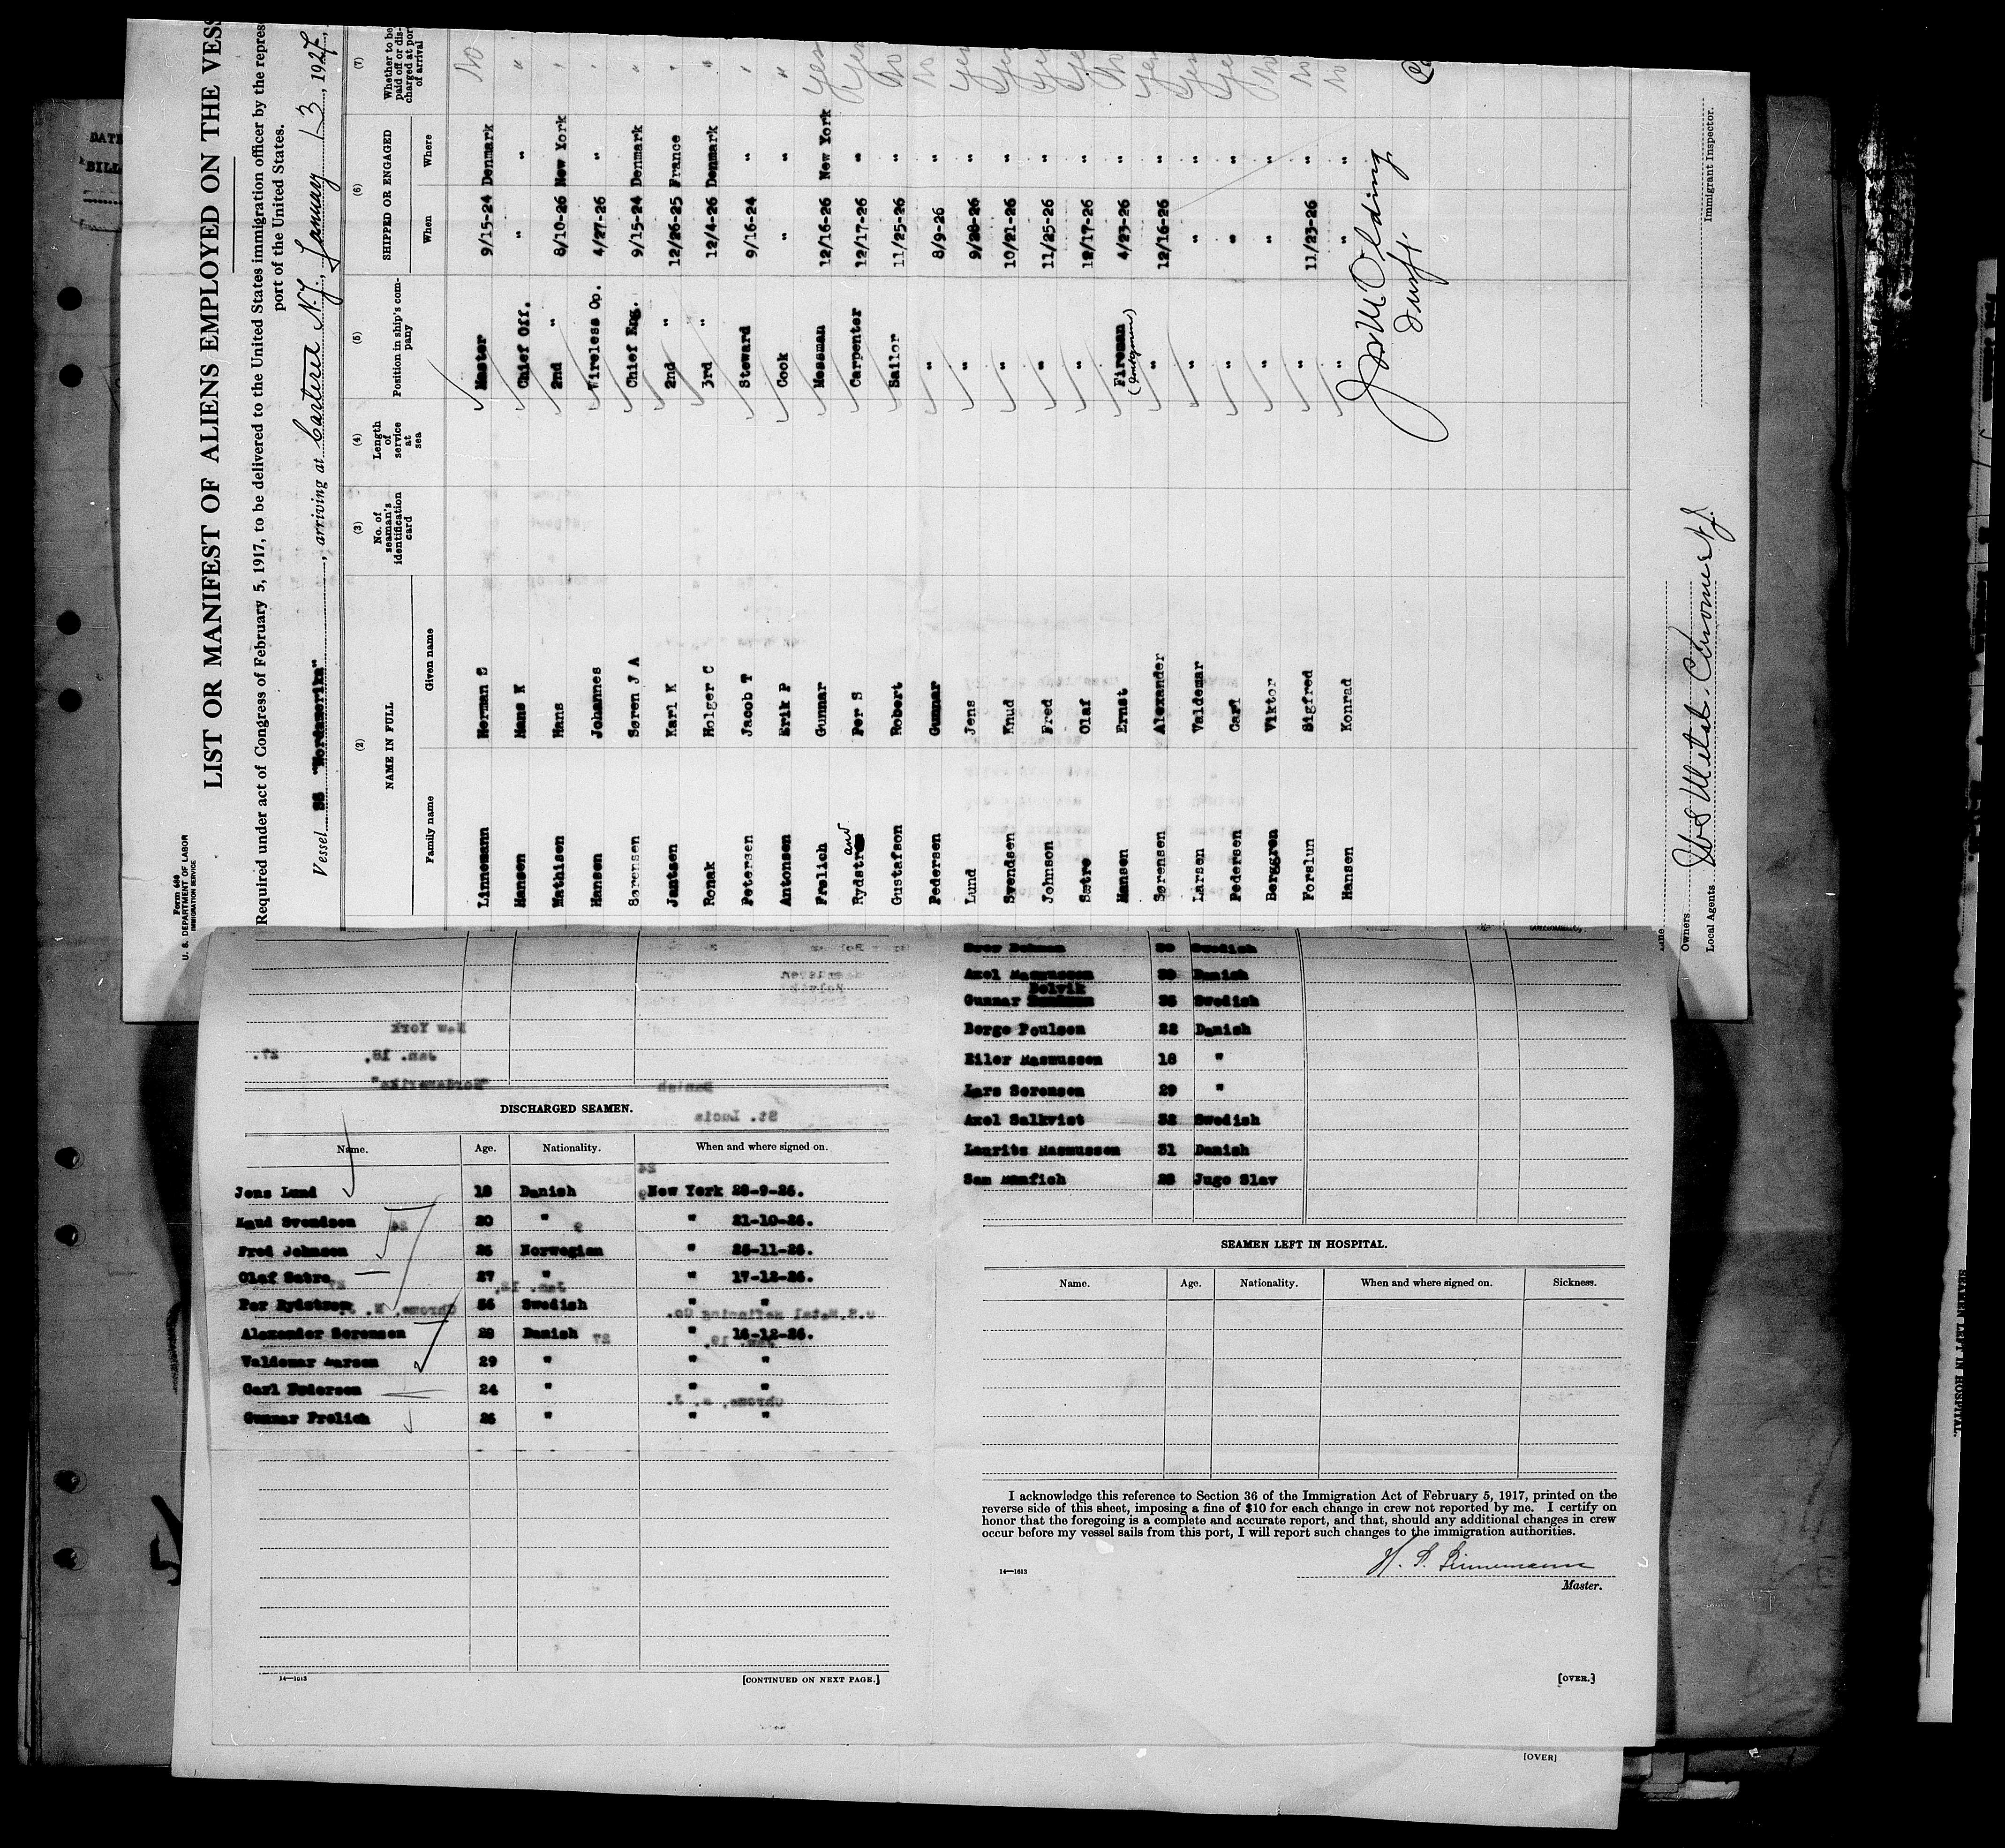 Form 680
U. S. DEPARTMENT OF LABOR
IMMIGRATION SERVICE
LIST OR MANIFEST OF ALIENS EMPLOYED ON THE VESS
Required under act of Congress of February 5, 1917, to be delivered to the United States immigration officer by the repres
port of the United States.
Vessel SS "Nordamerika", arriving at Carteret N.J., January 13, 1927,
(2) (3) (4) (5) (6) (7)
NAME IN FULL
Family name Given name
No. of seaman's identification card
Length of service at sea
Position in ship's company
SHIPPED OR ENGAGED
When Where
Whether to be paid off or discharged at port of arrival
Linnemann Herman S Master 9/15-24 Denmark No
Hansen Hans K Chief Off. " " "
Mathisen Hans 2nd " 8/10-26 New York "
Hansen Johannes Wireless Op. 4/27-26 " "
Sørensen Søren J A Chief Eng. 9/15-24 Denmark "
Jentzen Karl K 2nd " 12/26-25 France "
Ronak Holger C 3rd " 12/4-26 Denmark "
Petersen Jacob T Steward 9/16-24 " "
Antonsen Erik P Cook " " "
Frølich Gunnar Messman 12/16-26 New York Yes
Rydstrand Per S Carpenter 12/17-26 " Yes
Gustafson Robert Sailor 11/25-26 " No
Pedersen Gunnar " 8/9-26 " No
Lund Jens " 9/28-26 " Yes
Svendsen Knud " 10/21-26 " Yes
Johnson Fred " 11/25-26 " Yes
Sætre Olaf " 12/17-26 " Yes
Hansen Ernst Fireman 4/23-26 " No
(Donkeyman)
Sørensen Alexander " 12/16-26 " Yes
Larsen Valdemar " " " Yes
Pedersen Carl " " " Yes
Berggren Viktor " " " No
Forslun Sigfred " 11/23-26 " No
Hansen Konrad " " " No
Immigrant Inspector.
Owners
Local Agents U S Metal - Chrome N.J.
DISCHARGED SEAMEN.
Name. Age. Nationality. When and where signed on.
Jens Lund 18 Danish New York 28-9-26.
Knud Svendsen 20 " " 21-10-26.
Fred Johnson 26 Norwegian " 25-11-26.
Olaf Satre 27 " " 17-12-26.
Per Rydstrom 56 Swedish " "
Alexander Sorensen 28 Danish " 16-12-26.
Valdemar Larsen 29 " " "
Carl Pedersen 24 " " "
Gunnar Frolich 26 " " "
14—1613
[CONTINUED ON NEXT PAGE.]
Swedish
Axel Rasmussen 29 Danish
Solvik
Gunnar 35 Swedish
Borge Poulsen 22 Danish
Eiler Rasmussen 18 "
Lars Sorensen 29 "
Axel Salkvist 32 Swedish
Laurits Rasmussen 31 Danish
Sam 28 Jugo Slav
SEAMEN LEFT IN HOSPITAL.
Name. Age. Nationality. When and where signed on. Sickness.
I acknowledge this reference to Section 36 of the Immigration Act of February 5, 1917, printed on the
reverse side of this sheet, imposing a fine of $10 for each change in crew not reported by me. I certify on
honor that the foregoing is a complete and accurate report, and that, should any additional changes in crew
occur before my vessel sails from this port, I will report such changes to the immigration authorities.
14—1613
H. S. Linnemann
Master.
[OVER.]
[OVER]